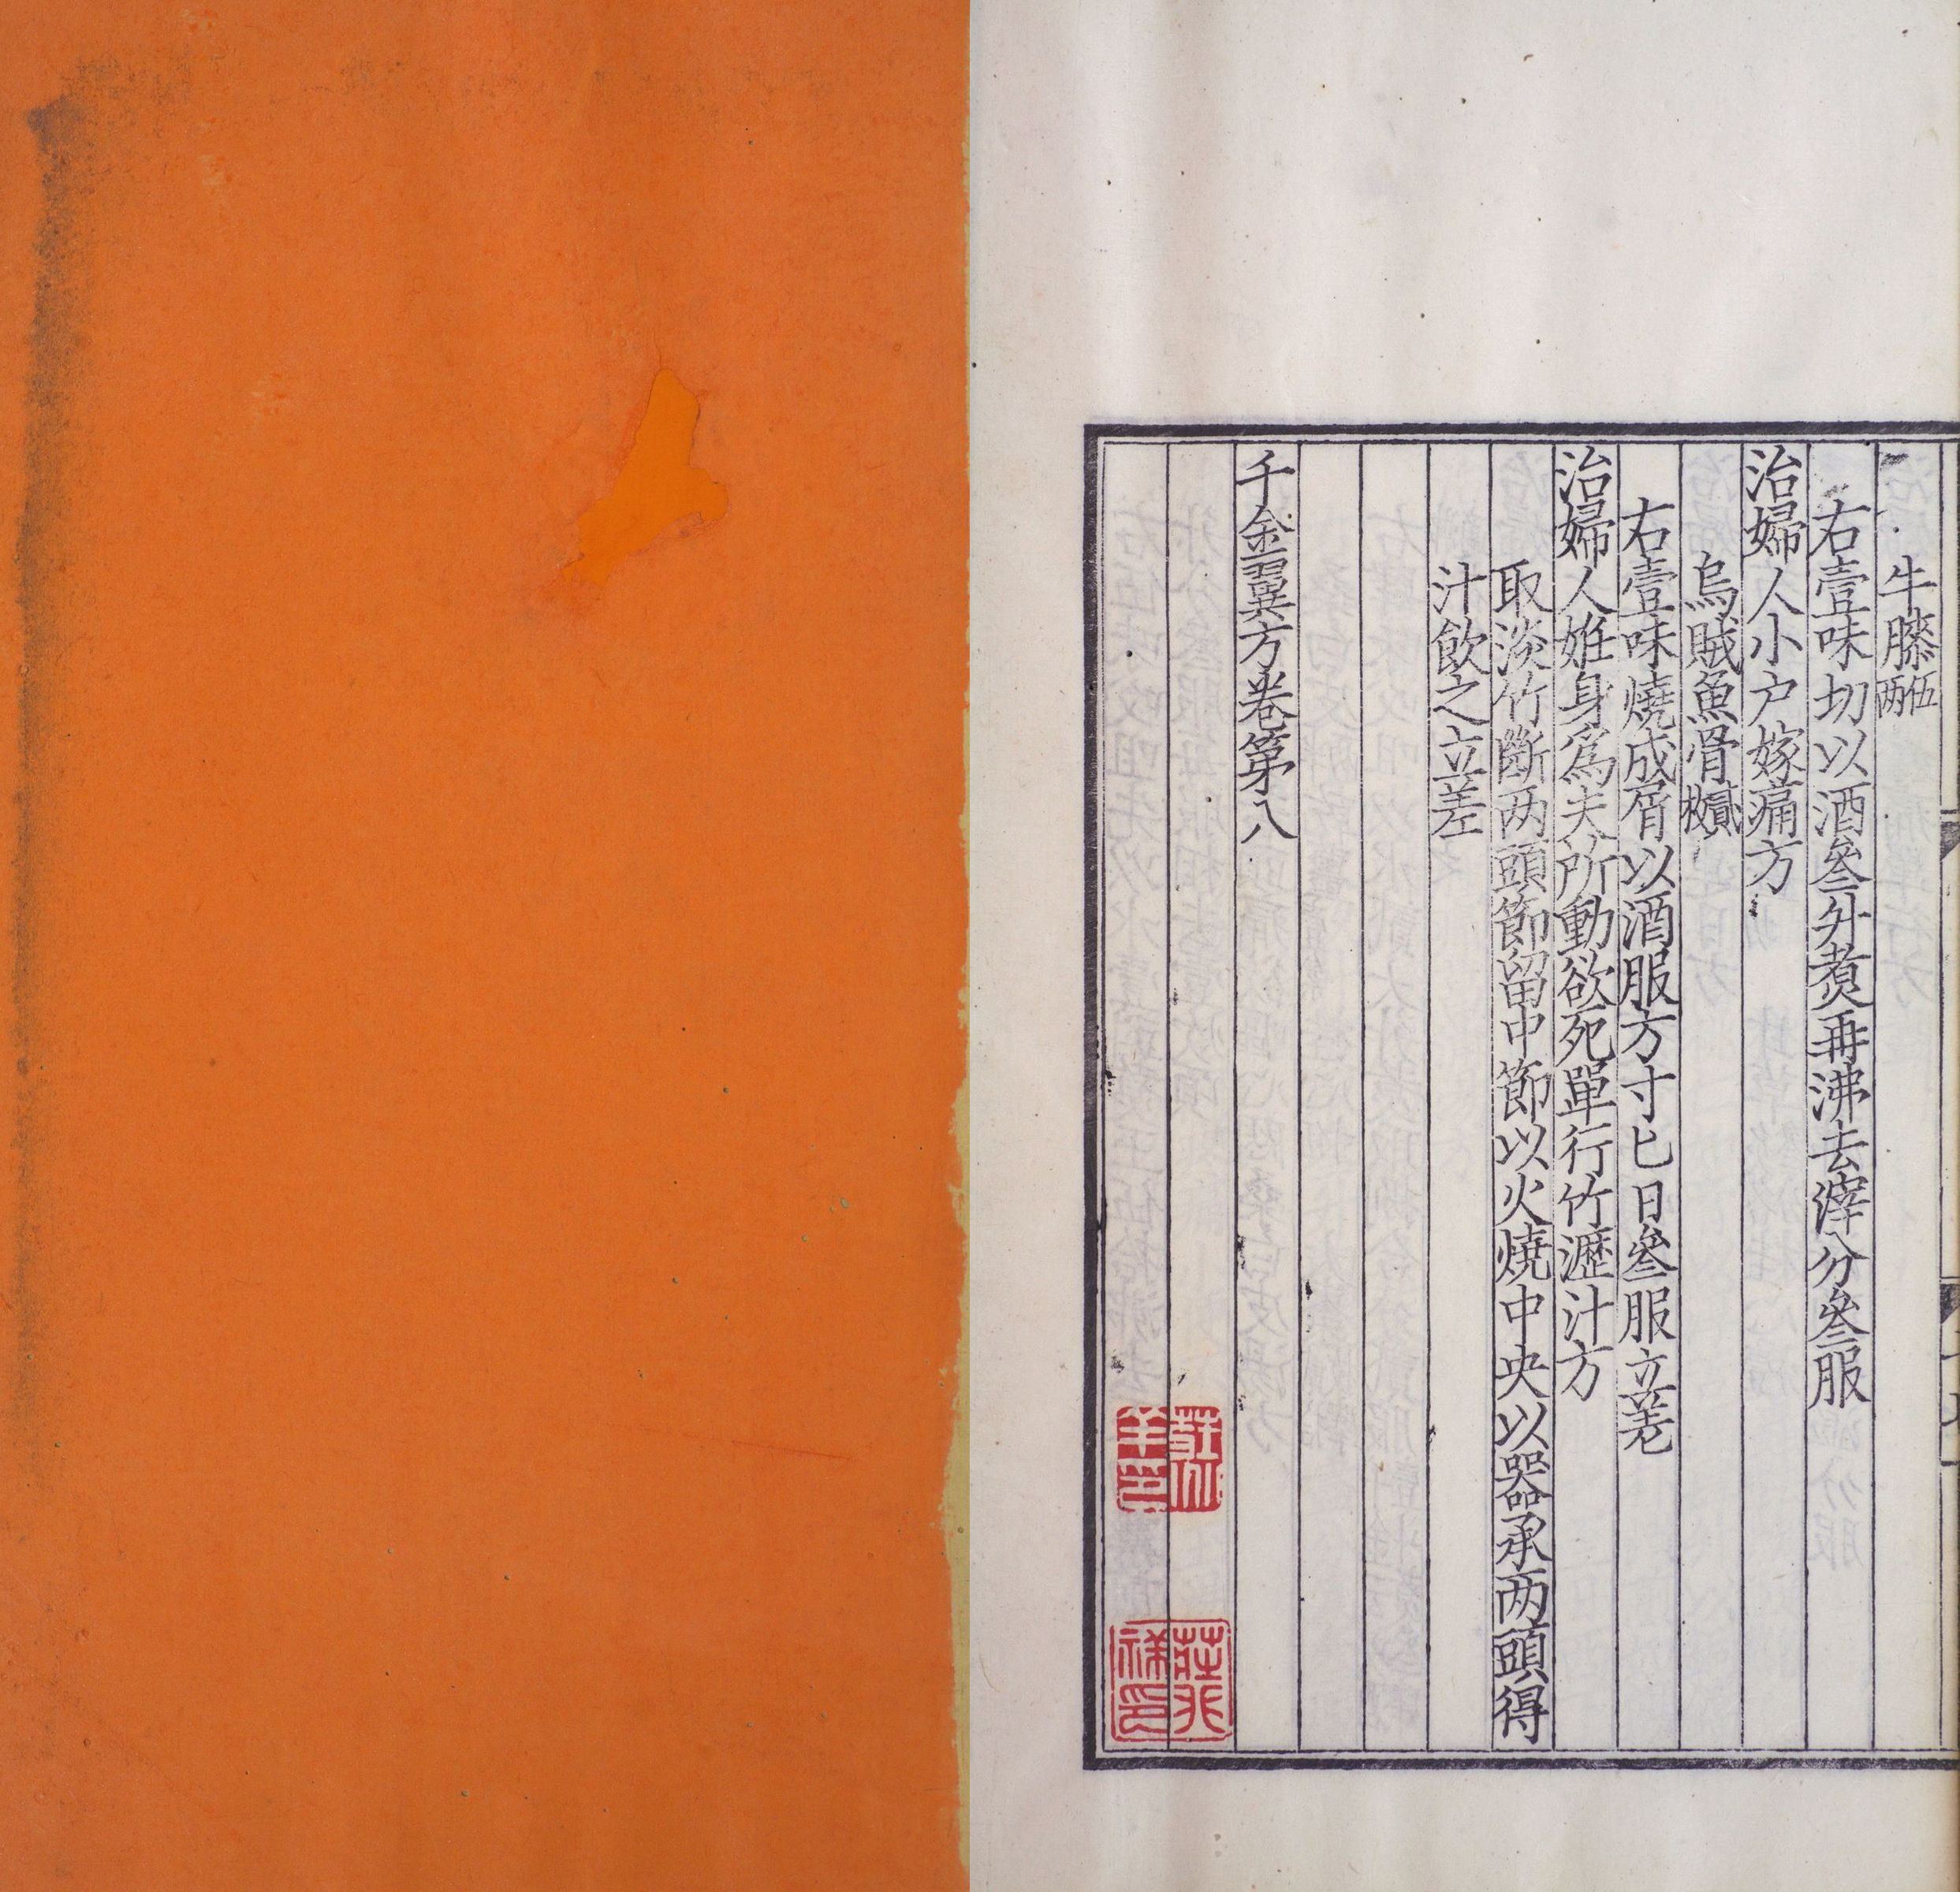 牛膝伍两
右壹味切以酒叄升煑再沸去滓分叄服
治婦人小户嫁痛方
烏賊魚骨貳枚
右壹味燒成屑以酒服方寸匕日叄服立差
治婦人姙身爲夫所動欲死單行竹瀝汁方
取淡竹斷两頭節留中節以火燒中央以器承两頭得
汁飲之立差
千金翼方卷第八